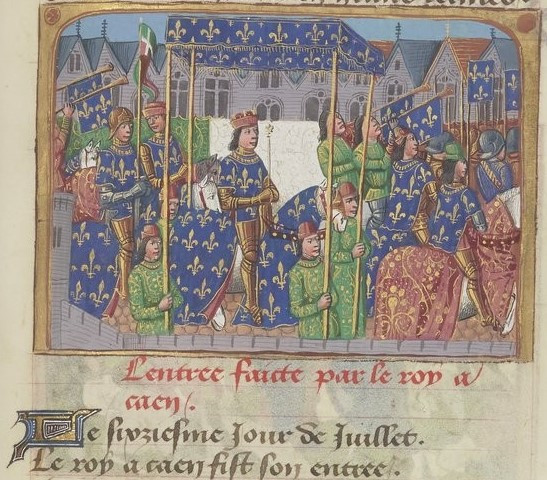 L'entree faicte par le roy a
caen.
Le sixziesme Jour de Juillet.
Le roy a caen fist son entree.